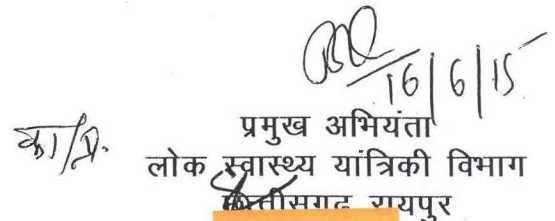 16/6/15
का/प्र.
प्रमुख अभियंता
लोक स्वास्थ्य यांत्रिकी विभाग
छत्तीसगढ़ रायपुर